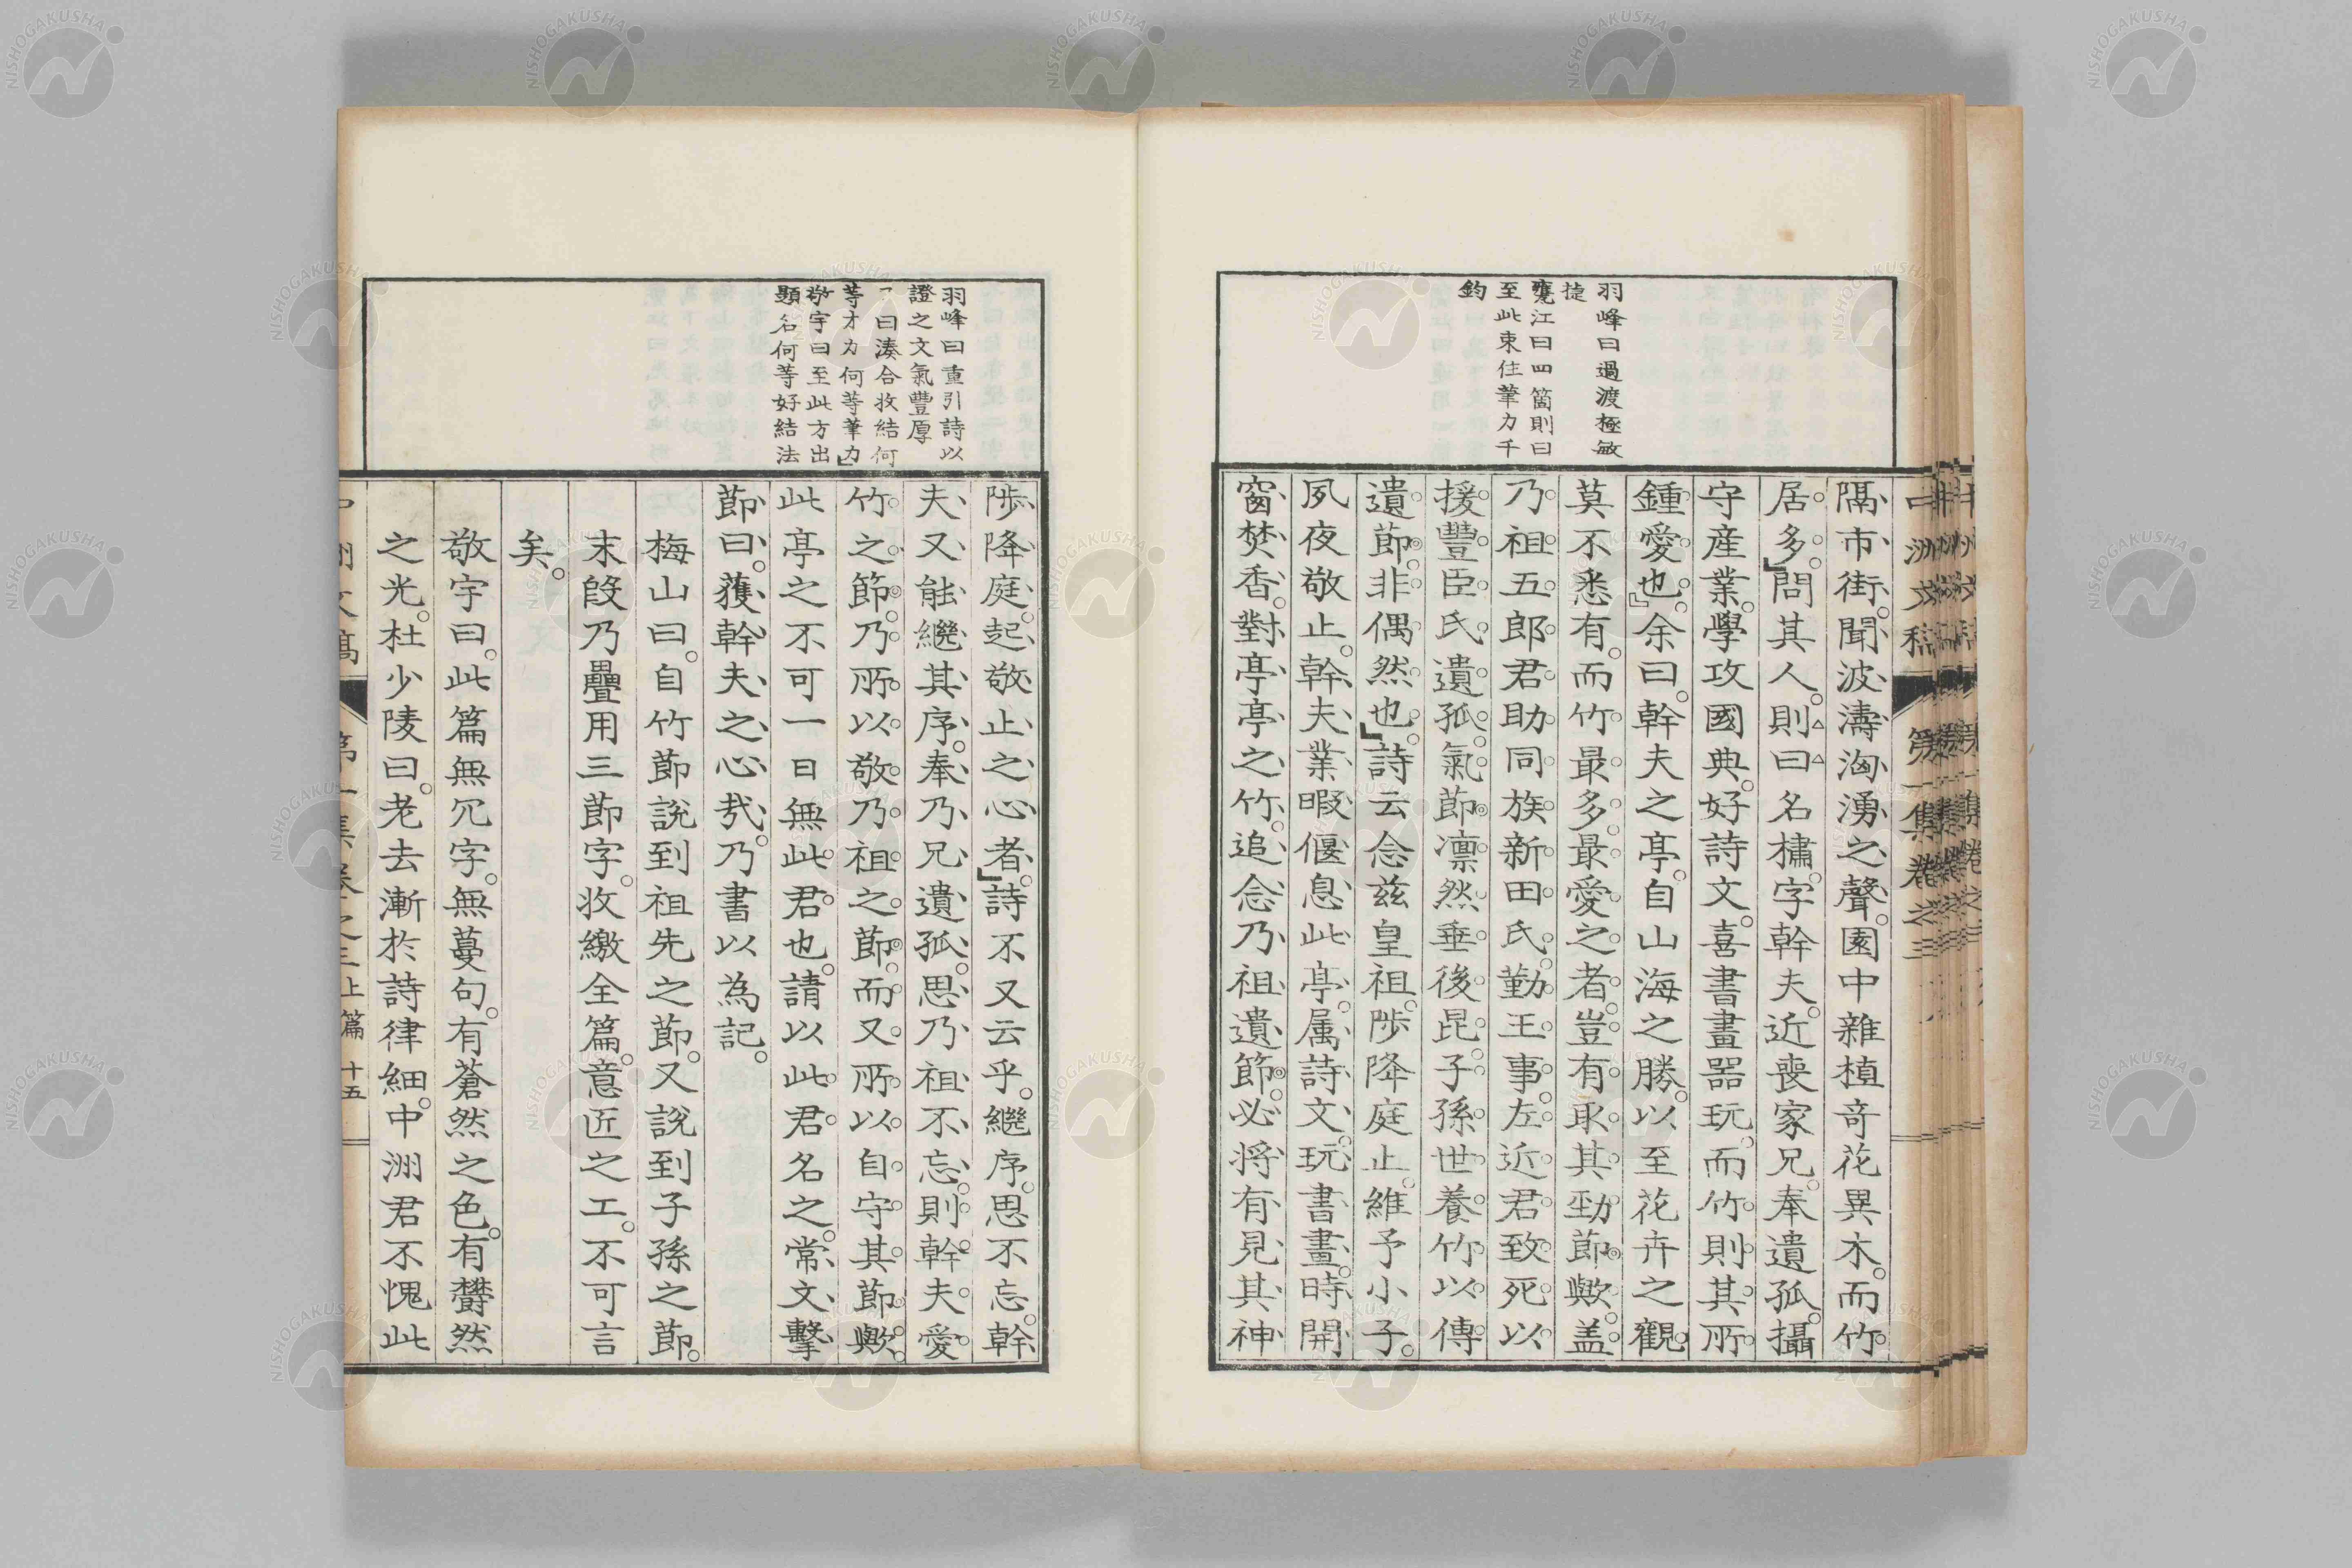 羽峰曰過渡極敏
捷
甕江曰四箇則曰
至此束住筆力千
鈞
隔市街。聞波濤洶湧之聲。園中雜植奇花異木。而竹
居多。』問其人。則曰名橚。字幹夫。近喪家兄。奉遺孤。攝
守産業。學攻國典。好詩文。喜書畫器玩。而竹則其所
鍾愛也。』余曰。幹夫之亭。自山海之勝。以至花卉之觀。
莫不悉有。而竹最多。最愛之者。豈有取其勁節歟。盖
乃祖五郎君助同族新田氏。勤王事。左近君致死以
援豐臣氏遺孤。氣節凛然垂後昆。子孫世養竹以傳
遺節。非偶然也。』詩云念玆皇祖。陟降庭止。維予小子。
夙夜敬止。幹夫業暇偃息此亭。属詩文。玩書畫。時開
窗焚香。對亭亭之竹。追念乃祖遺節。必将有見其神
中洲文稿 第一集卷之三
羽峰曰重引詩以
證之文氣豐厚
又曰湊合收結何
等才力何等筆力』
敬宇曰至此方出
題名何等好結法
陟降庭。起敬止之心者。』詩不又云乎。繼序。思不忘。幹
夫又能繼其序。奉乃兄遺孤。思乃祖不忘。則幹夫愛
竹之節。乃所以敬乃祖之節。而又所以自守其節歟。
此亭之不可一日無此君也。請以此君名之。常文擊
節曰。獲幹夫之心哉。乃書以為記。
梅山曰。自竹節說到祖先之節。又說到子孫之節。
末段乃疊用三節字。收繳全篇。意匠之工。不可言
矣。
敬宇曰。此篇無冗字。無蔓句。有蒼然之色。有欝然
之光。杜少陵曰。老去漸於詩律細。中洲君不愧此
中洲文稿 第一集卷之三上篇 十五